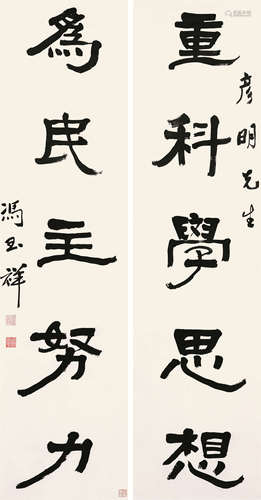 重科學思想
彥明先生
為民主努力
馮玉祥